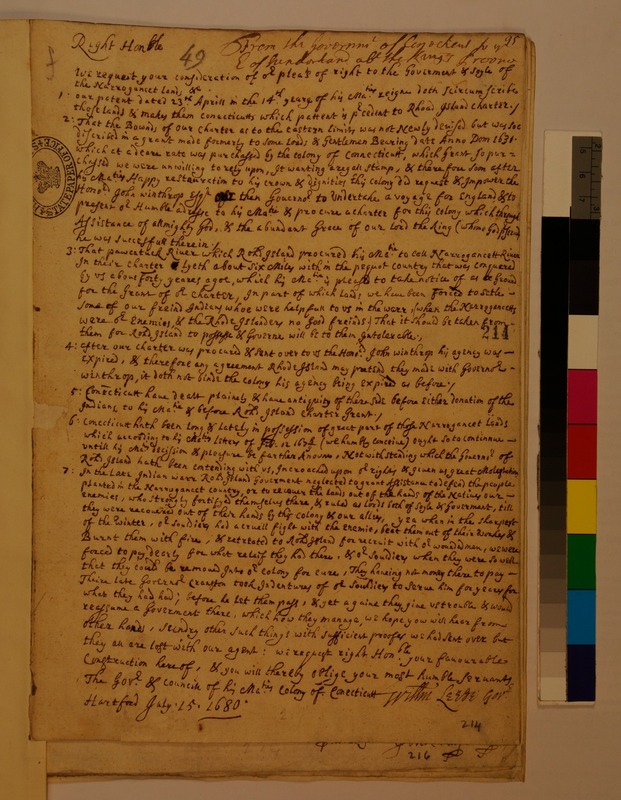 Right Honble 49 From the Governmt of to ye 95
E of Sunderland abt the Kings Province
We request your consideration of or pleas of right to the Goverment & soyle of
the Narrogancet Lands, &c
1: our patent dated 23th Aprill in the 14th yeare of his Maties reigne doth Scircumscribe
those lands & makes them connecticuts which pattent is precedent to Rhode Island Charter./
2: That the Bounds of our Charter as to the eastern limits was not Newly devised but was soe
discribed in a grant made formerly to some lords & Gentlemen Bearing date Anno Dom 1631.
which at a deare rate was purchased by the colony of Connecticutt, which grant so pur-
chased we were unwilling to rely upon, It wanting a regall stamp, & therefore soon after
his Maties Happy restauration to his crown & dignities this colony did request & Impower the
Honord John winthrop Esqr then Governor to Undertake a voyage for England, & to
present or Humble adresse to his Matie & procure a charter for this colony which through
Assistance of almighty God, & the abundant Grace of our lord the King (whome God
he was successfull therein./
3: That pawcatuck River which Rode Island procured his Matie to call Narrogancett River
In their charter lyeth about Six Miles with in the pequot country that was conquered
By us about Forty yeares agoe, which his Matie is pleased to take notice of as a Ground
for the Grant of or charter, In part of which lands we have been Forced to Settle -
some of our freind Indians whoe were helpfull to us in the warr (when the Narrogancetts
were or Enemies, & the Rhode Islanders no God freinds) That it should be taken from
them for Rode Island to possesse & Governe will be to them Intolerable;
214
4: after our charter was procured & sent over to us the Honor John winthrop his agency was -
Expired, & therefore any agreement Rhode Island may pretend they made with Governor -
winthrop, it doth not binde the colony his agency being expired as before./
5: Connecticutt have dealt plainely & have antiquity of there side before either donation of the
Indians to his Matie & before Rode Island charter Grant./
6: Connecticutt hath been long & lately in possession of great part of those Narrogancet Lands
which according to his Maties letters of 1679 (we humbly conceive) ought so to continue -
untill his Maties decission & pleasure be farther known, Notwithstanding which the Governmt of
Rode Island hath been contending with us, Incroached upon or rights & given us great Molestation
7: In the late Indian warr Rode Island Goverment neglected to grant Assistance to defend the people
planted in the Narrogancet country, or to recover the lands out of the hands of the Native our -
enemies, who strongly fortifyed themselves there, & ruled as Lords both of soyle & Goverment, till
they were recovered out of their hands by this colony & our allies, yea when in the sharpest
of the winter, or Souldiers had a cruell fight with the enemie, beat them out of their works, &
Burnt them with fire, & retreated to Rode Island for recruit with or wounded men, we were
forced to pay dearly for what releif they had there, & or Souldiers when they were so well
that they could be removed Into or colony for cure, They haveing not money there to pay -
Their late Governor cranston took Indentures of or Souldiers to serve him for yeares for
what they had had; before he let them pass, & yet againe they give us trouble & would
reassume a Goverment there. which how they manage, we hope you will hear from
other hands, Sundry other such things with sufficient proofes we had sent over but
they all are lost with our agent: we request right Honble your favourable
Construction hereof, & you will thereby oblige your most humble servants
The Govr & councill of his Maties Colony of Conecticutt Willm Leete Govr
Hartford July. 15. 1680.
214
216